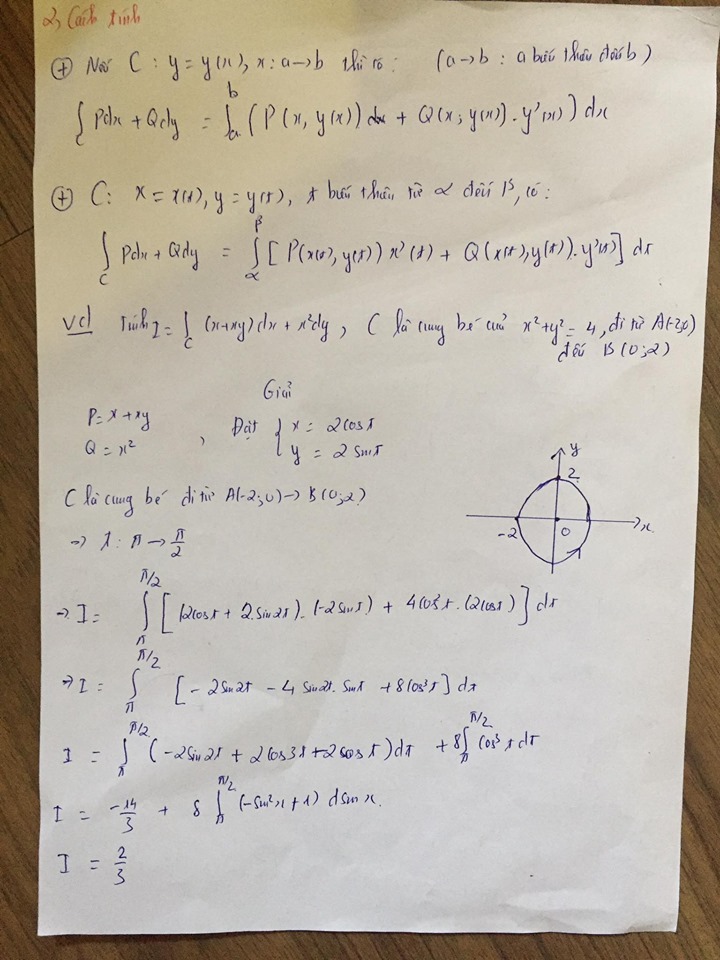 2, Cách tính
⊕ Nếu C: y = y(x), x: a→b thì có: (a→b : a biến thiên đến b)
∫_C Pdx + Qdy = ∫_a^b (P(x, y(x)) dx + Q(x; y(x)). y'(x)) dx
⊕ C: x = x(t), y = y(t), t biến thiên từ α đến β, có:
∫_C Pdx + Qdy = ∫_α^β [P(x(t), y(t)) x'(t) + Q(x(t), y(t)). y'(t)] dt
Vd Tính I = ∫_C (x+xy)dx + x²dy, C là cung bé của x²+y²=4, đi từ A(-2;0)
đến B(0;2)
Giải
P = x + xy
Q = x²
, Đặt { x = 2cost
y = 2sint
y
2
-2 0 x
C là cung bé đi từ A(-2;0) → B(0;2)
⇒ t: π → π/2
⇒ I = ∫_π^{π/2} [(2cost + 2.sin2t).(-2sint) + 4cos²t.(2cost)] dt
⇒ I = ∫_π^{π/2} [-2sin2t - 4sin2t.sint + 8cos³t] dt
I = ∫_π^{π/2} (-2sin2t + 2cos3t + 2cost)dt + 8∫_π^{π/2} cos³t dt
I = -14/3 + 8 ∫_π^{π/2} (-sin²x + 1) dsinx.
I = 2/3